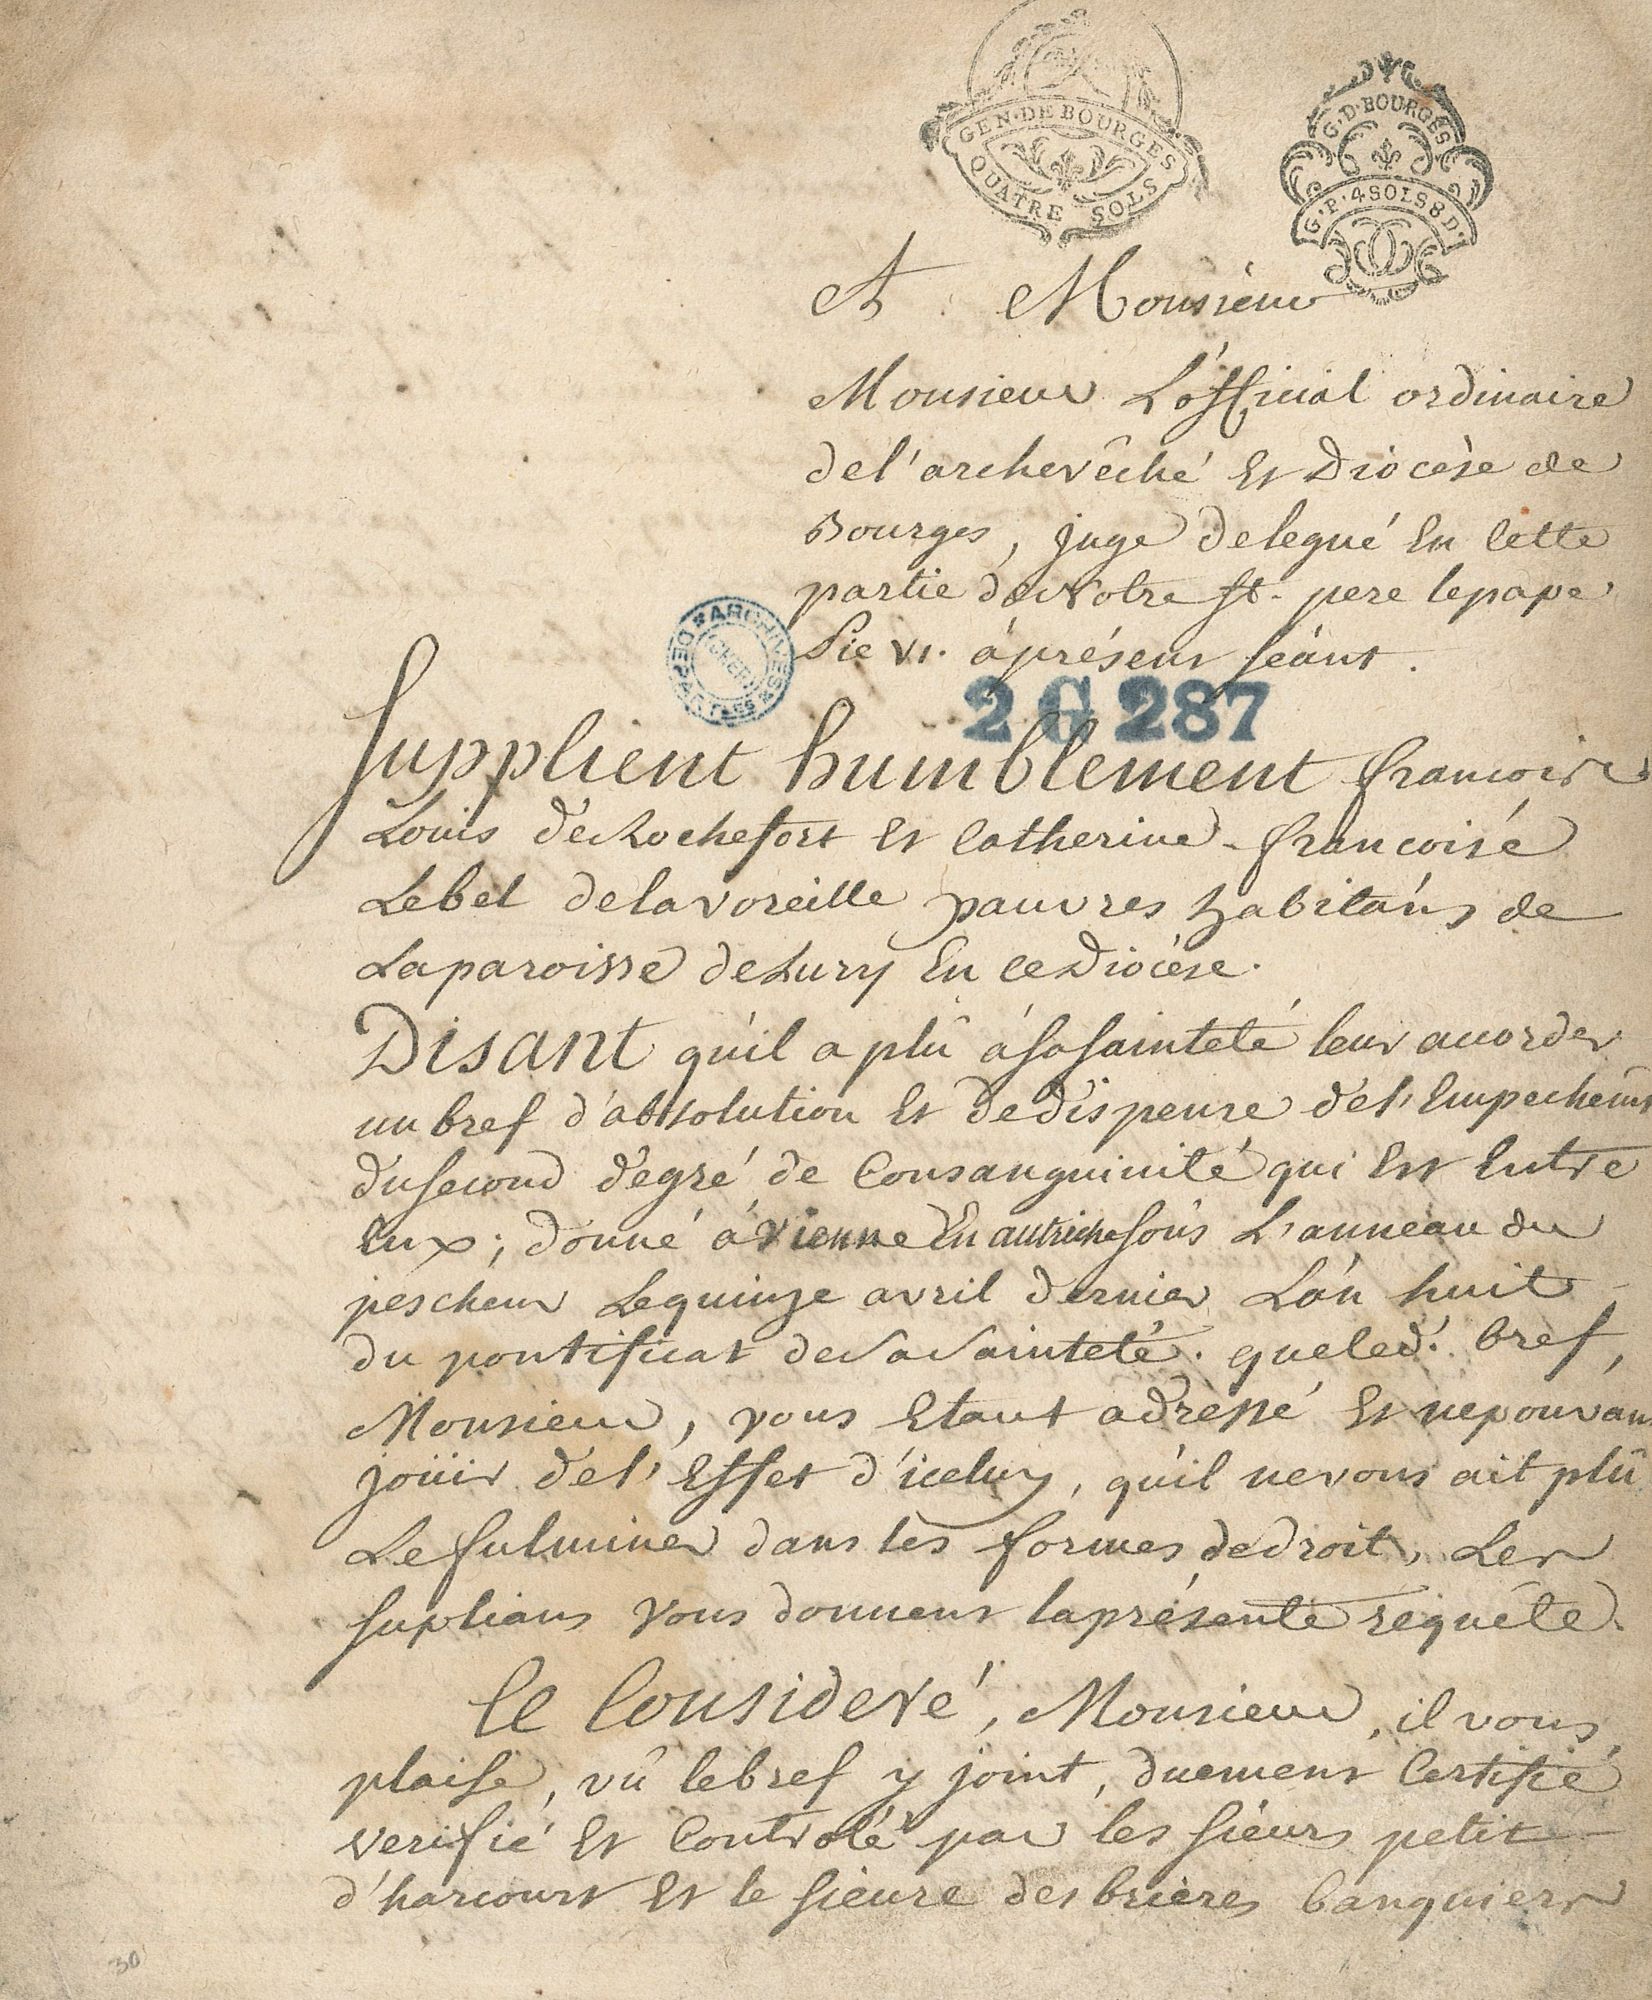 GEN·DE BOURGES
QUATRE SOLS
G·D·BOURGES
G·P·4SOLS8D·
A Monsieur
Monsieur L'official ordinaire
de l'archevêché Et Diocèse de
Bourges, juge delegué En Cette
partie de Notre st. pere le pape
Pie VI. àprésent séant.
ARCHIVES DEPARTLES
CHER
2 G 287
Supplient humblement francois
Louis de Rochefort Et Catherine-francoise
Lebel delavoreille pauvres habitans de
La paroisse de Lury En ce Diocèse.
Disant qu'il a plû à sa sainteté leur accorder
un bref d'absolution Et de dispense de l'Empechemt
du second degré de Consanguinité qui Est Entre
Eux; donné à Vienne En autriche sous L'anneau du
pescheur Le quinze avril dernier L'an huit
du pontificat de sa sainteté. que led. bref,
Monsieur, vous Etant adressé Et ne pouvant
joüir de l'Effet d'iceluy, qu'il ne vous ait plû
Le fulminer dans les formes de droit, Les
suplians vous donnent la présente requête.
Ce Consideré, Monsieur, il vous
plaise, vû le bref y joint, duement Certifié
verifié Et Controlé par les sieurs petit
d'harcourt Et le sieure des brières banquiers
30